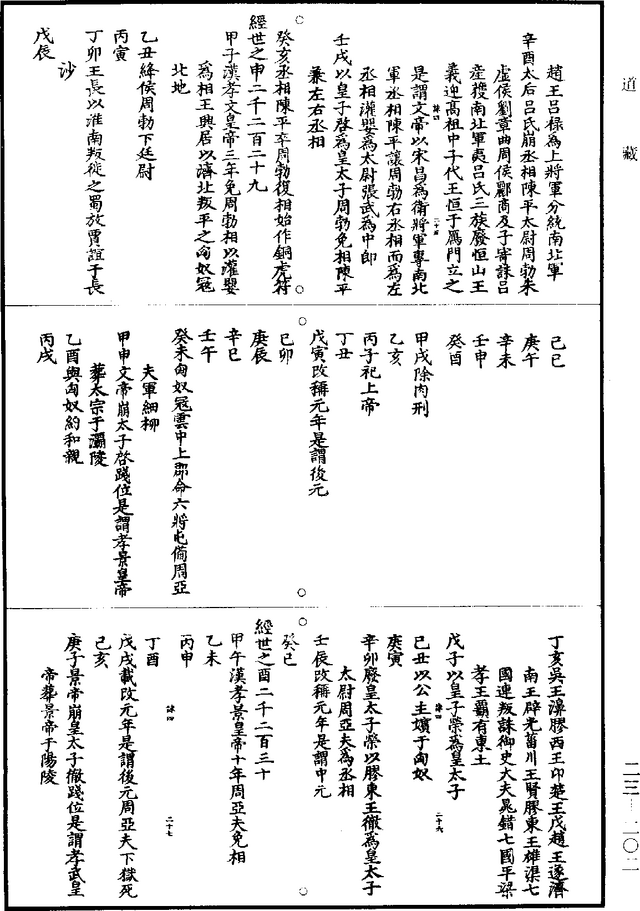 道藏
趙王呂祿為上將軍分統南北軍
辛酉太后呂氏崩丞相陳平太尉周勃朱
虛侯劉章曲周侯酈商及子寄誅呂
產捜南北軍夷呂氏三族廢恒山王
義迎高祖中子代王恒于鴈門立之
是謂文帝以宋昌為衛將軍專南北
軍丞相陳平讓周勃右丞相而為左
丞相灌嬰為太尉張武為中郎
壬戌以皇子啓為皇太子周勃免相陳平
兼左右丞相
癸亥丞相陳平卒周勃復相始作銅虎符
經世之申二千二百二十九
甲子漢孝文皇帝三年免周勃相以灌嬰
為相王興居以濟北叛平之匈奴冦
北地
乙丑絳侯周勃下廷尉
丙寅
丁卯王長以淮南叛徙之蜀放賈誼于長
沙
戊辰
己巳
庚午
辛未
壬申
癸酉
甲戌除肉刑
乙亥
丙子祀上帝
丁丑
戊寅改稱元年是謂後元
己卯
庚辰
辛巳
壬午
癸未匈奴冦雲中上郡命六將屯備周亞
夫軍細柳
甲申文帝崩太子啓踐位是謂孝景皇帝
葬太宗于灞陵
乙酉與匈奴約和親
丙戌
丁亥吳王濞膠西王卬楚王戊趙王遂濟
南王辟光菑川王賢膠東王雄渠七
國連叛誅御史大夫晁錯七國平梁
孝王霸有東土
戊子以皇子榮為皇太子
己丑以公主嬪于匈奴
庚寅
辛卯廢皇太子榮以膠東王徹為皇太子
太尉周亞夫為丞相
壬辰改稱元年是謂中元
癸巳
經世之酉二千二百三十
甲午漢孝景皇帝十年周亞夫免相
乙未
丙申
丁酉
戊戌載改元年是謂後元周亞夫下獄死
己亥
庚子景帝崩皇太子徹踐位是謂孝武皇
帝葬景帝于陽陵
二十六
二十七
二三—二〇二